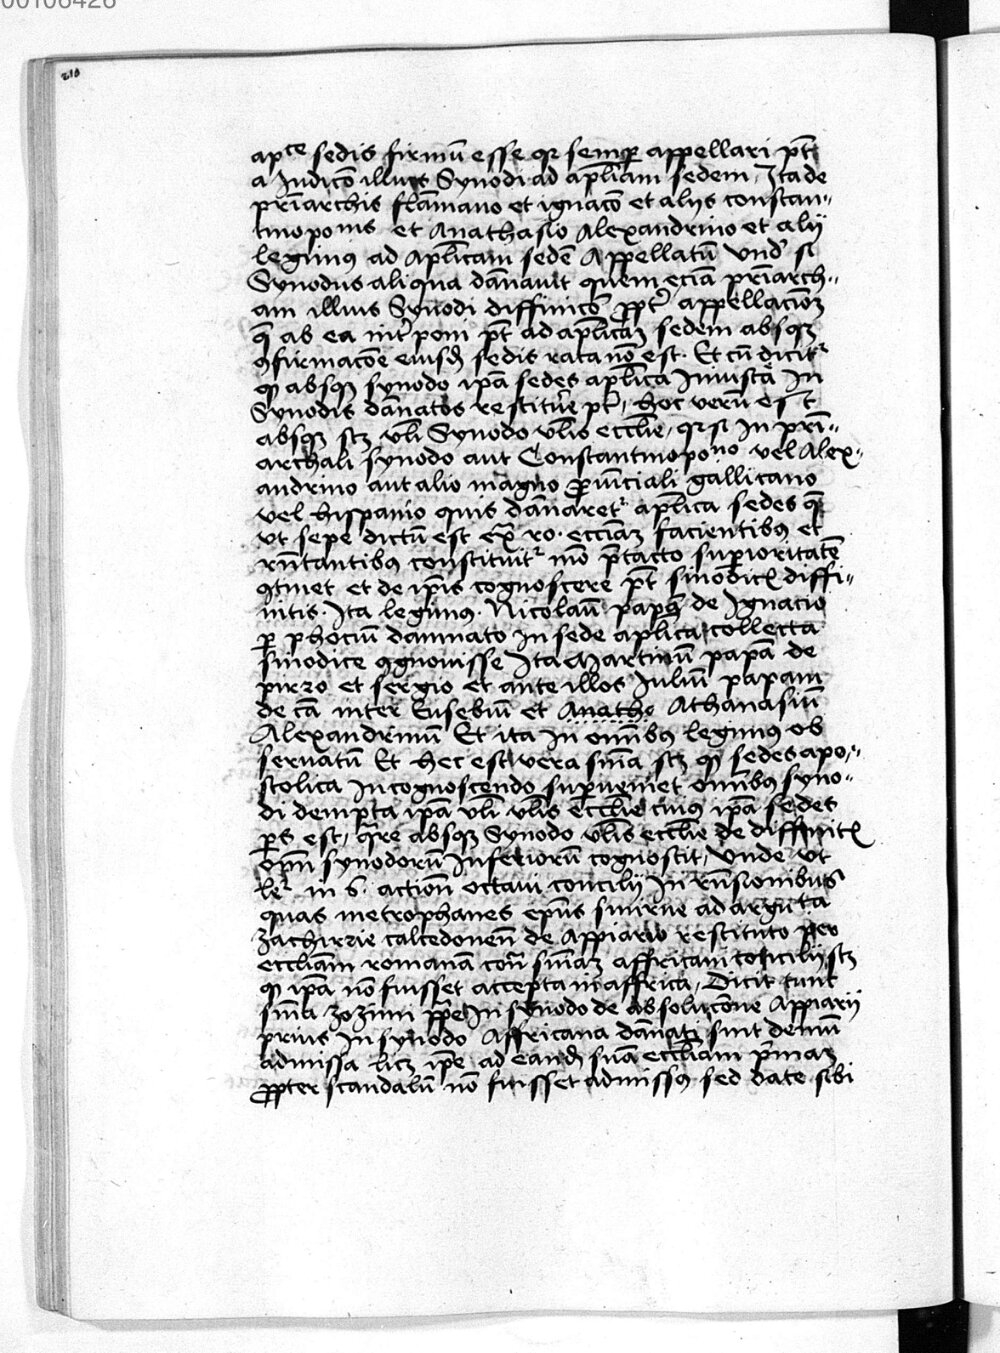 00106426
210
apce sedis firmū esse qr semꝑ appellari pt̄
a Judicō illius Synodi ad aplicam sedem Ita de
pr̄iarchis flāmiano et ignacō et alijs constan-
tinoponis et Anathasio Alexandrino et alij
legimꝰ ad Aplicam sedē Appellatū Und̄ si
Synodus aliqua dānauit quem eciā priarch-
am illius Synodi diffinicō ꝓpt̄ appellacionē
q̄ ab ea int̄poni pt̄ ad aplicaꝫ sedem absqꝫ
ꝯfirmacōe eiusd̄ sedis rata nō est. Et cū dicitr
ꝙ absqꝫ synodo ip̄a sedes aplica Iniuste In
Synodis dānatos restitue pt̄, hoc verū est
absqꝫ scꝫ vl̄i Synodo vl̄is eccl̄ie, qr si In pri-
archali synodo aut Constantinopono vel Alex-
andrino aut alio magno ꝓuinciali gallicano
vel hispanio quis dānaretr aplica sedes que
vt sepe dictū est ex ro. eccīaꝫ facientibꝰ et
rn̄tantibꝰ constituitr mō p̄tacto suꝑioritatē
ꝯtinet et de ip̄is cognoscere pt̄ sinodicꝭ diffi-
nitis. Ita legimꝰ. Nicolaū papā de Ignacio
ꝑ phociū damnato In sede aplica collecta
sinodice ꝯgnouisse Ita Martinū papā de
pirro et sergio et ante illos Juliū papam
de cā inter Eusebiū et Anatho Athanasiū
Alexandrinū Et ita In om̄ibꝰ legimꝰ ob
seruatū Et hec est vera sīnia scꝫ ꝙ sedes apo-
stolica In cognoscendo supueniet om̄ibꝰ syno-
di dempta ip̄a vl̄i vl̄is eccl̄ie cuiꝰ ip̄a sedes
ps est, quare absqꝫ Synodo vl̄is eccl̄ie de diffinitꝭ
om̄n synodorū Inferiorū cognoscit, Unde vt
ler in 6. action octaui concilij In rn̄sionibus
quas metrophanes epūs smirne ad arguta
zachirie calcedonen̄ de Appiario restituto per
eccliam romanā con̄ sīniaꝫ affricani concilij scꝫ
ꝙ ip̄a nō fuisset accepta in affrica, Dicit tunc
sīnia zozimi pp̄e In synodo de absolucōne Appiarij
prius In synodo Affricana dānati sint demū
admissa licꝫ ip̄e ad eand̄ suā eccliam p̄maꝫ
ꝓpter scandalū nō fuisset admissꝰ sed date sibi